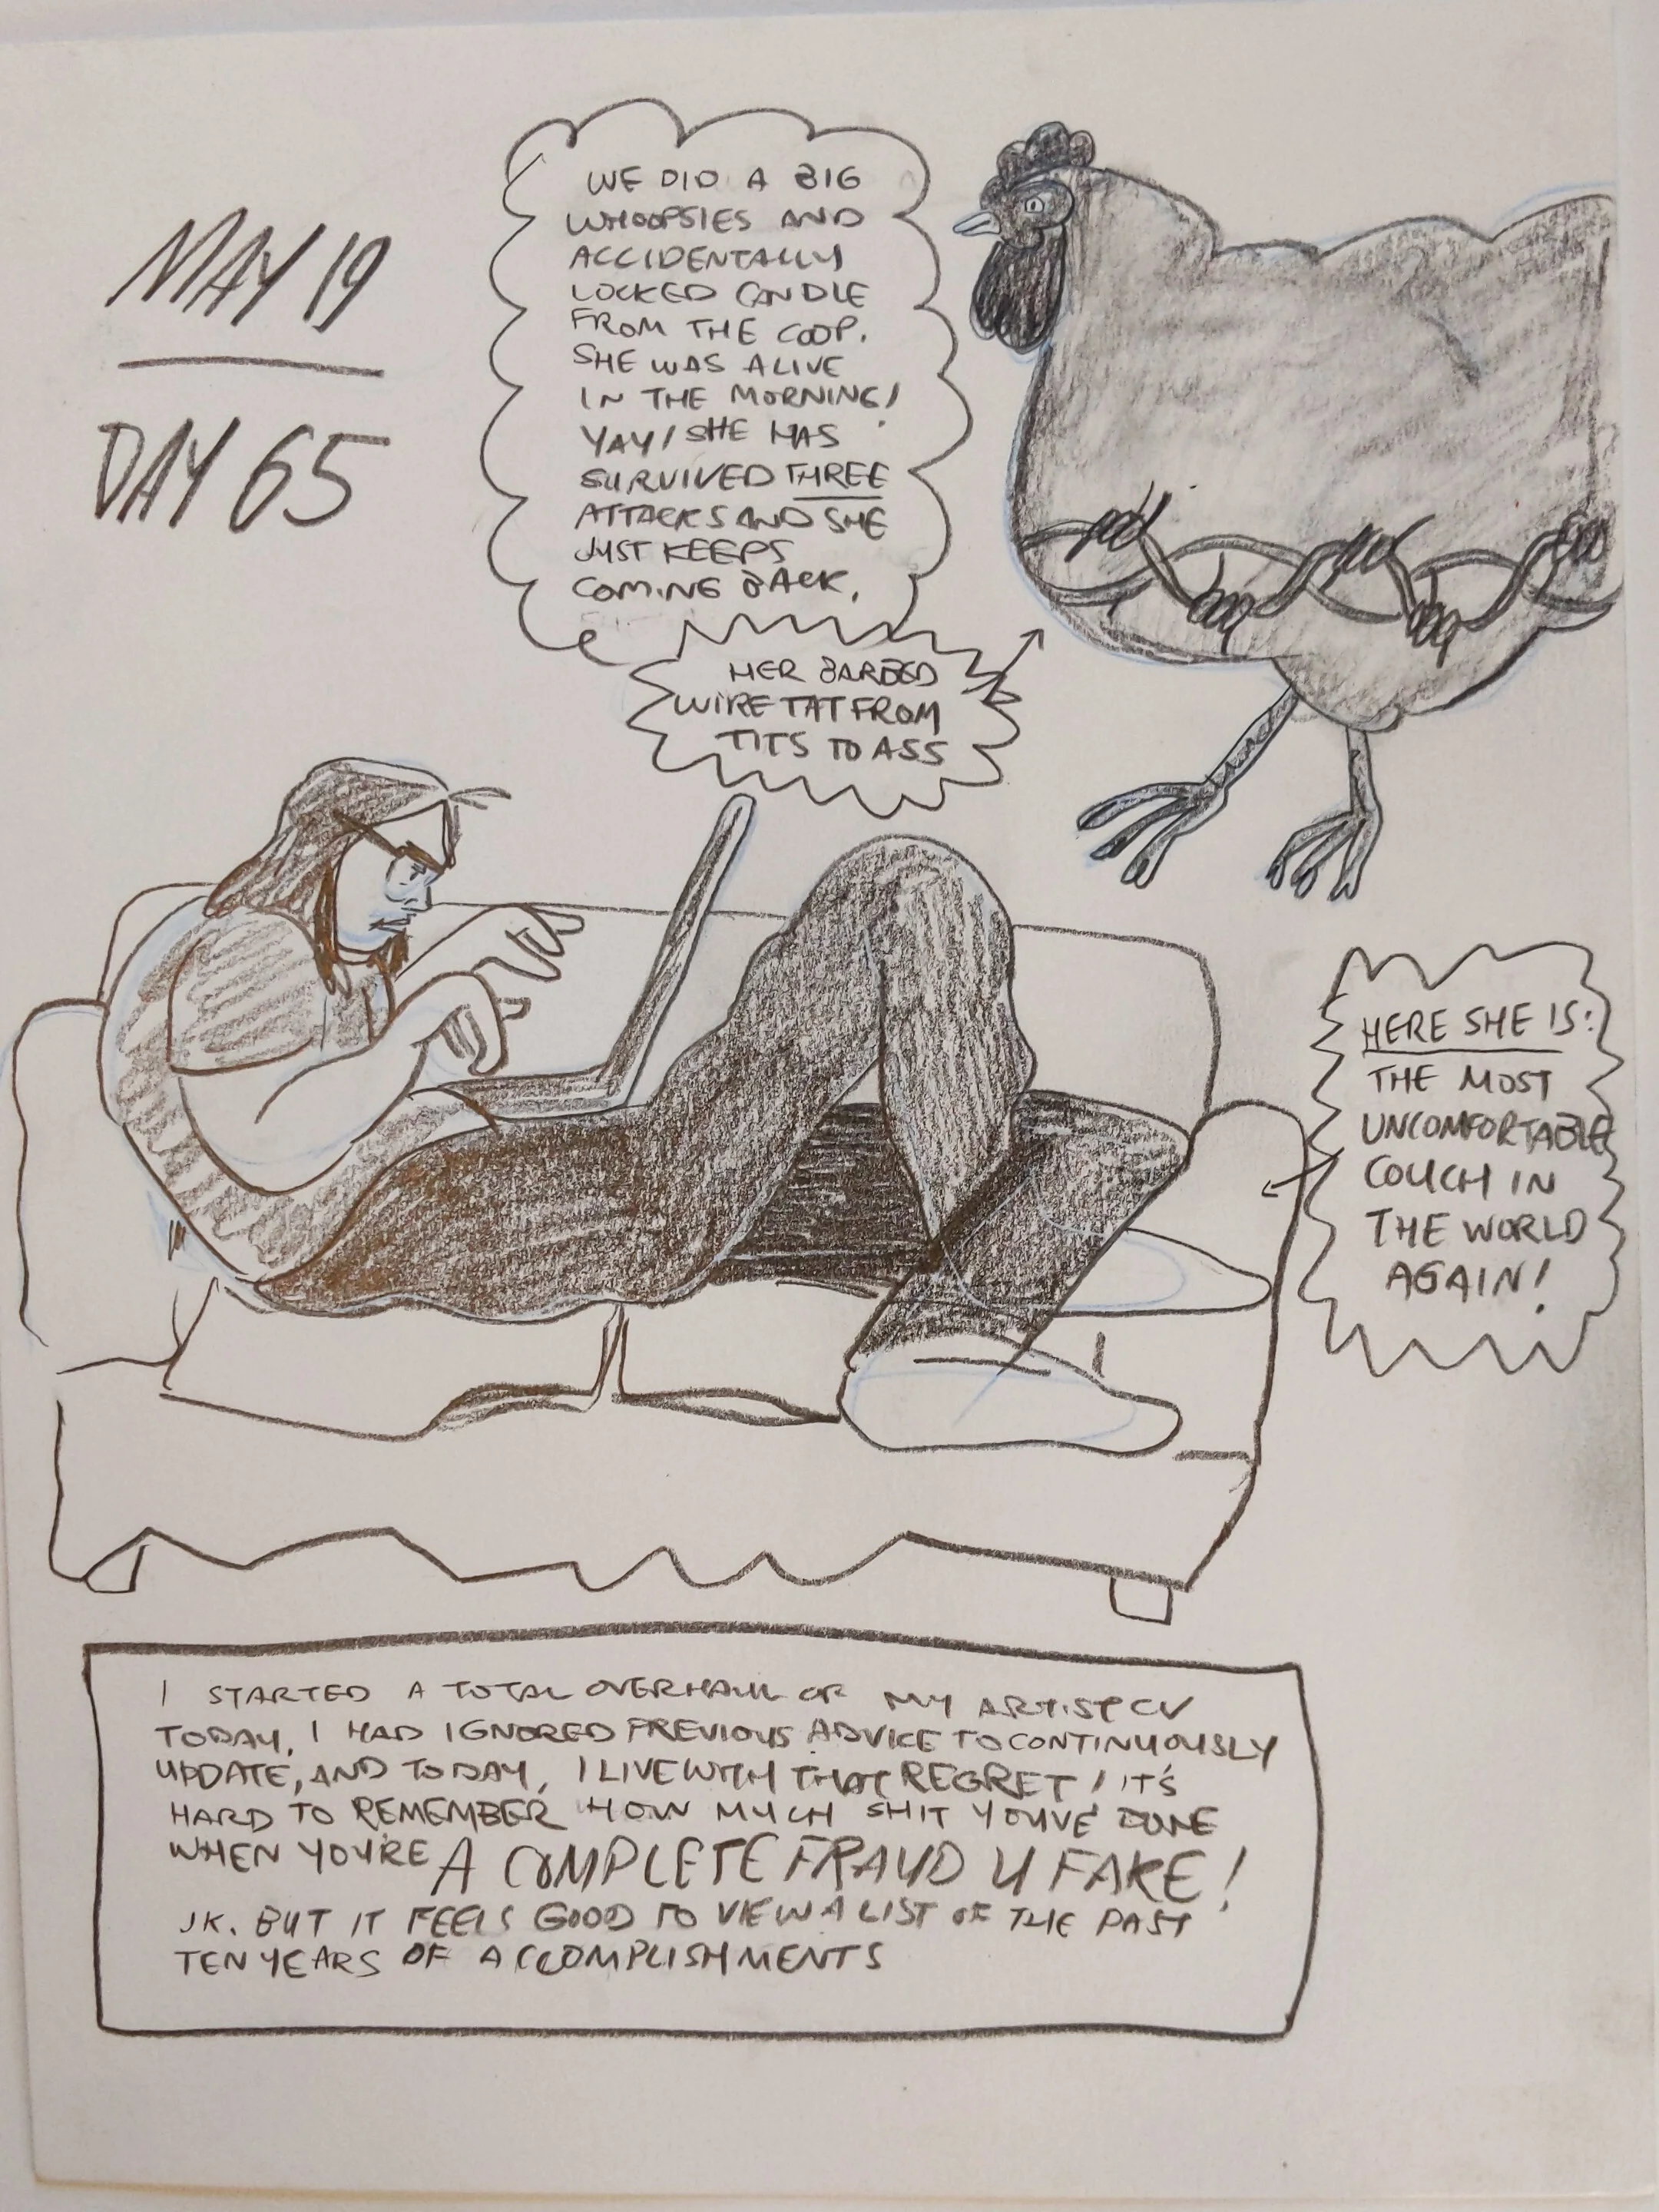 MAY 19
DAY 65
WE DID A BIG
WHOOPSIES AND
ACCIDENTALLY
LOCKED CANDLE
FROM THE COOP.
SHE WAS ALIVE
IN THE MORNING!
YAY! SHE HAS
SURVIVED THREE
ATTACKS AND SHE
JUST KEEPS
COMING BACK.
HER BARBED
WIRE TAT FROM
TITS TO ASS
HERE SHE IS:
THE MOST
UNCOMFORTABLE
COUCH IN
THE WORLD
AGAIN!
I STARTED A TOTAL OVERHAUL OF MY ARTIST CV
TODAY. I HAD IGNORED PREVIOUS ADVICE TO CONTINUOUSLY
UPDATE, AND TODAY, I LIVE WITH THAT REGRET! IT'S
HARD TO REMEMBER HOW MUCH SHIT YOU'VE DONE
WHEN YOU'RE A COMPLETE FRAUD U FAKE!
JK. BUT IT FEELS GOOD TO VIEW A LIST OF THE PAST
TEN YEARS OF ACCOMPLISHMENTS